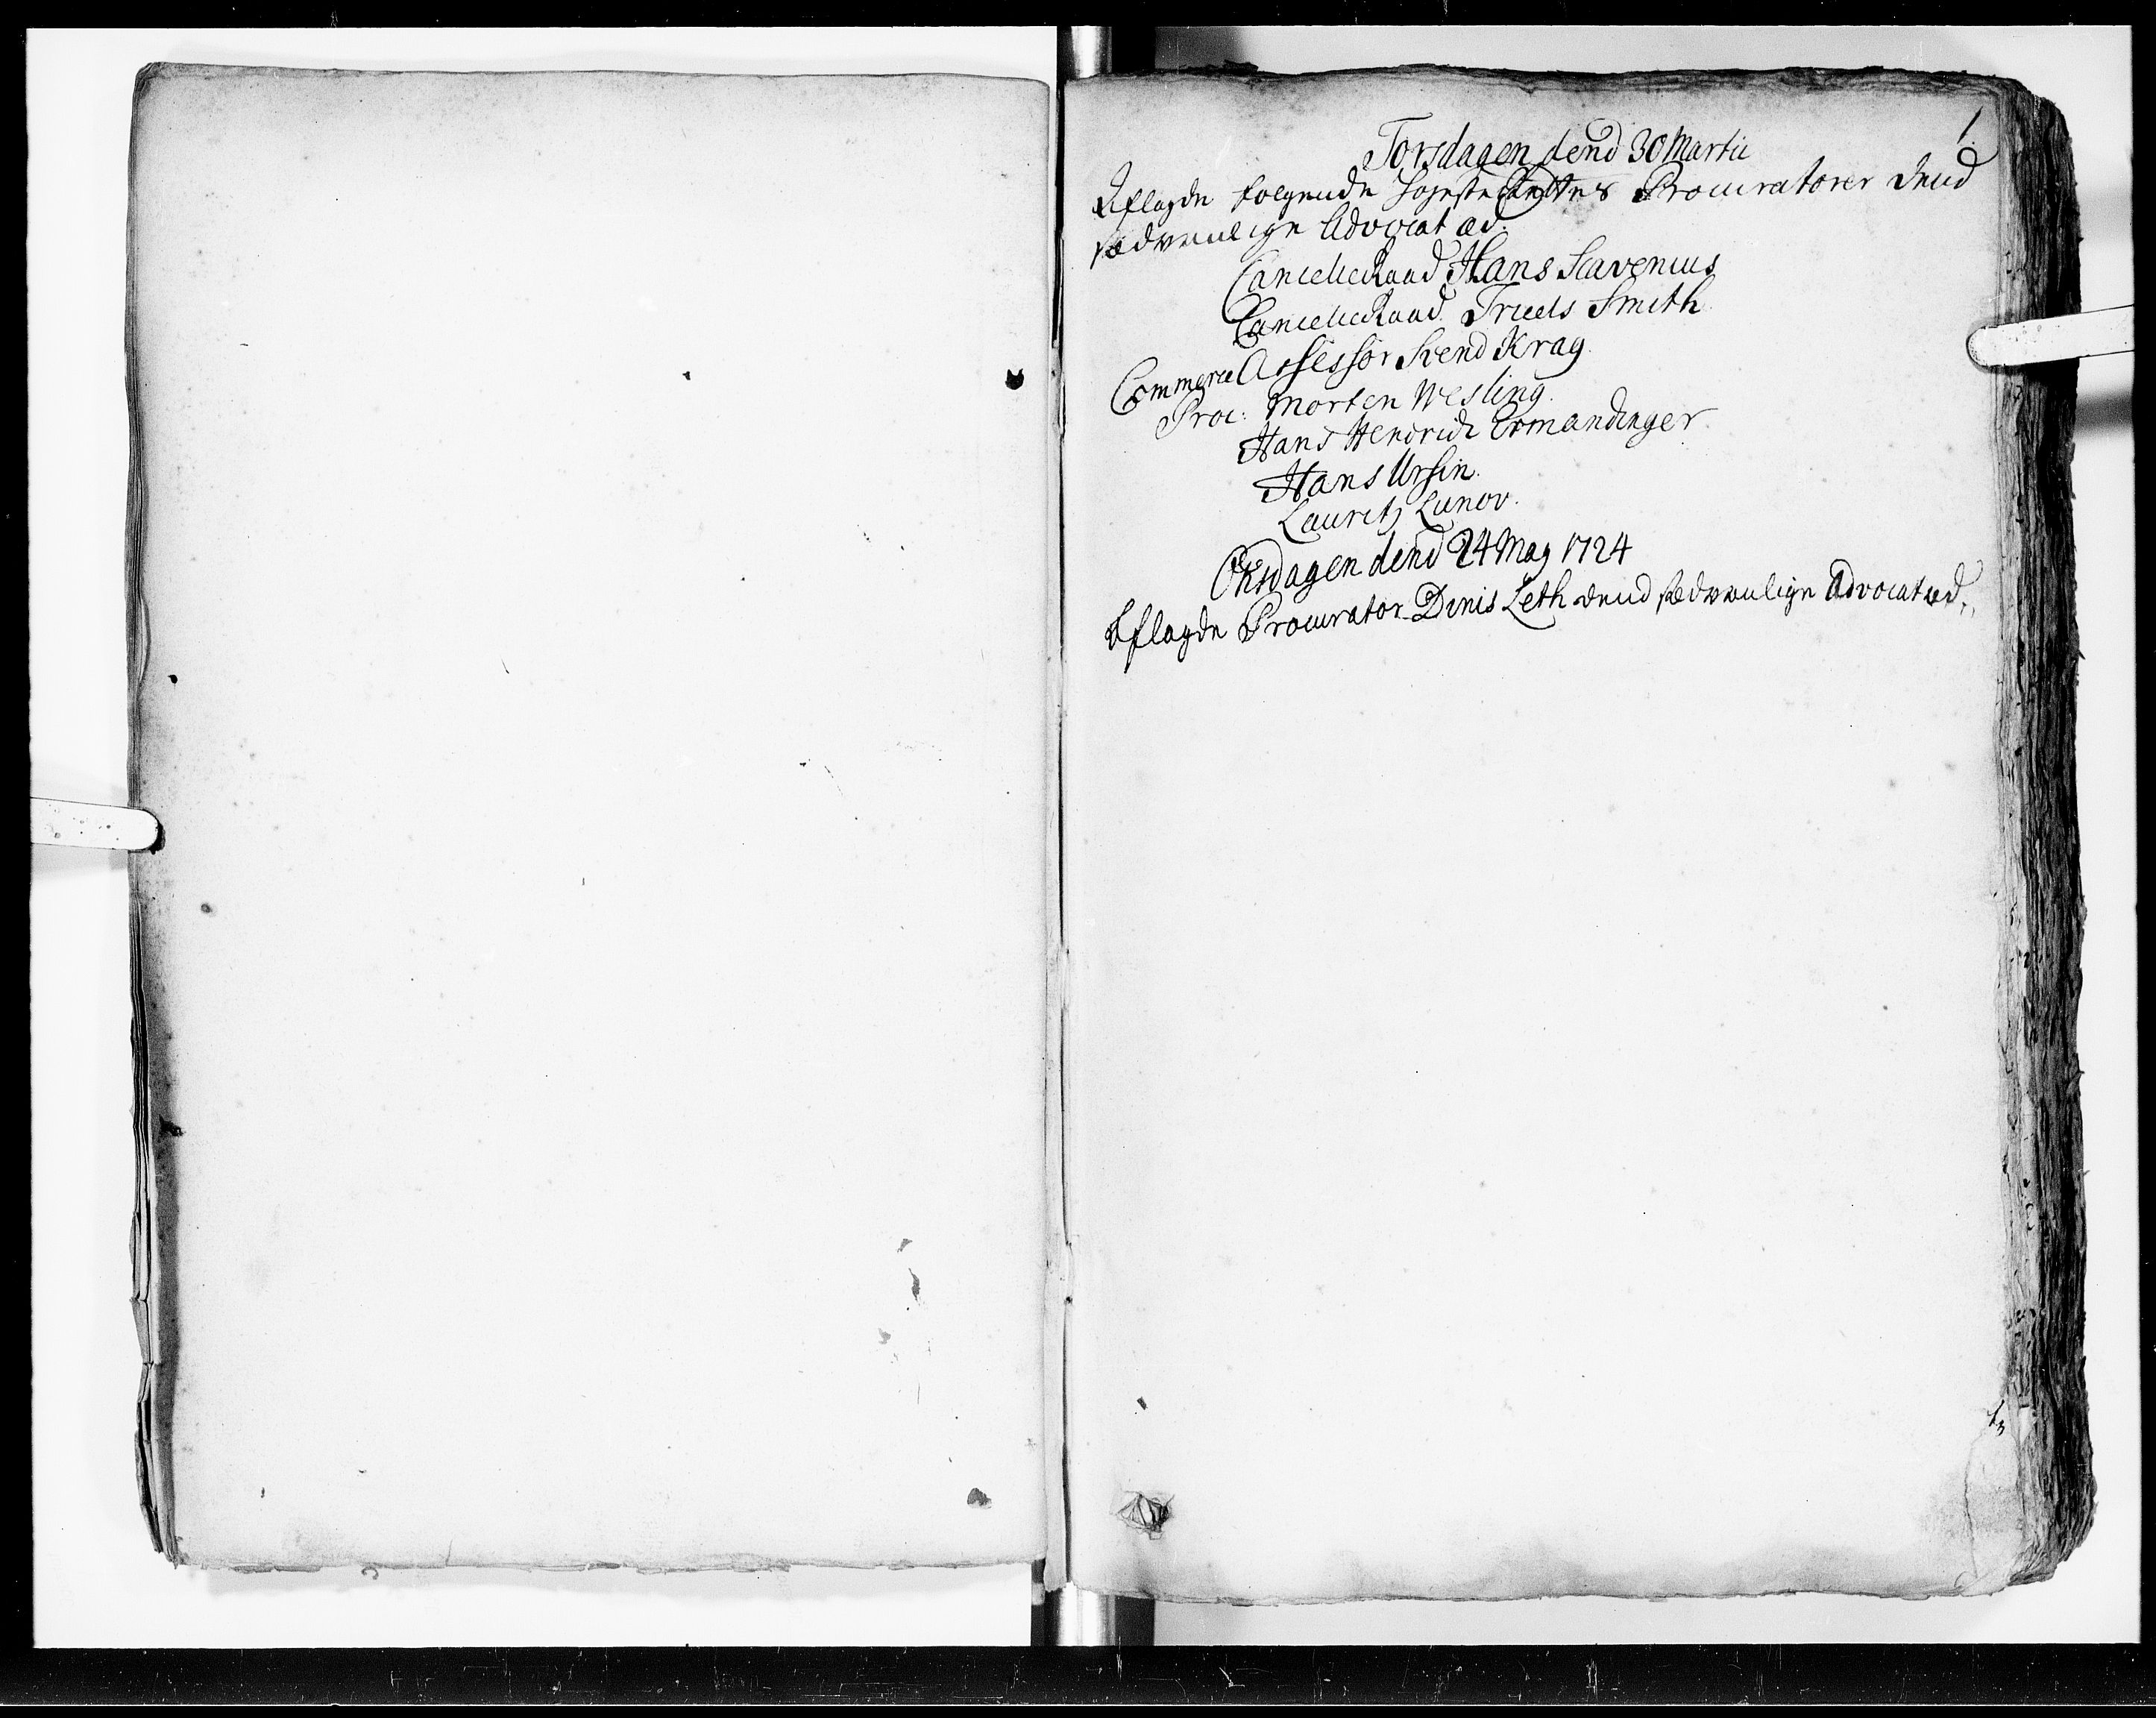 1.
Torsdagen dend 30 Martii
Aflagde følgende Højeste Rettes Procuratorer dend
sædvanlige Advocat æd.
CancelieRaad Hans Scavenius
CancelieRaad Truels Smith
Commerce Assessor Svend Krag
Proc: Morten Wesling.
Hans Hendrich Ermandinger
Hans Ursin.
Lauritz Lunov.
Onsdagen dend 24 Maÿ 1724
Aflagde Procurator Dinis Leth dend sædvanlige Advocat æd.